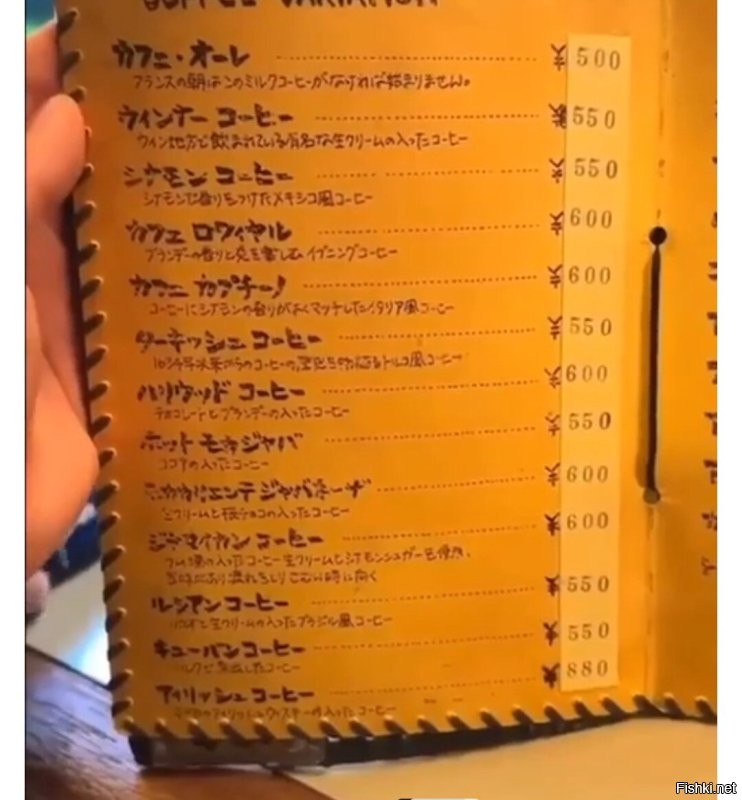 COFFEE VARIATION
カフェ・オーレ ¥500
フランスの朝はこのミルクコーヒーがなければ始まりません。
ウィンナー コーヒー ¥550
ウィン地方で飲まれている有名な生クリームの入ったコーヒー
シナモン コーヒー ¥550
シナモンで香りをつけたメキシコ風コーヒー
カフェ ロワイヤル ¥600
ブランデーの香りと イブニングコーヒー
カフェ カプチーノ ¥600
コーヒーにシナモンの香りがよくマッチしたイタリア風コーヒー
ターキッシュ コーヒー ¥550
トルコ風コーヒー
ハリウッド コーヒー ¥600
チョコレートとブランデーの入ったコーヒー
ホット モカジャバ ¥550
ココアの入ったコーヒー
ジャバネーザ ¥600
生クリームと板チョコの入ったコーヒー
ジャマイカン コーヒー ¥600
ラム酒の入ったコーヒー生クリームとシナモンシュガーを使用、
ルシアンコーヒー ¥550
生クリームの入ったブラジル風コーヒー
キューバンコーヒー ¥550
コーヒー
アイリッシュコーヒー ¥880
アイリッシュウィスキーの入ったコーヒー
Fishki.net